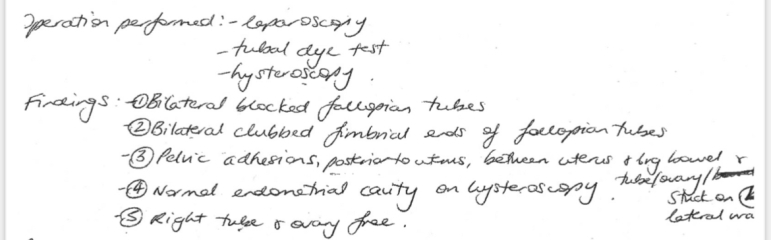 Operation performed: - laparoscopy
- tubal dye test
- hysteroscopy.
Findings: - ① Bilateral blocked fallopian tubes
- ② Bilateral clubbed fimbrial ends of fallopian tubes
- ③ Pelvic adhesions, posterior to uterus, between uterus & lrg bowel &
tube/ovary/
- ④ Normal endometrial cavity on hysteroscopy.
stuck on
- ⑤ Right tube & ovary free.
lateral wa